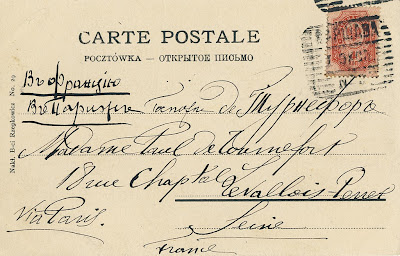 CARTE POSTALE
POCZTÓWKA — ОТКРЫТОЕ ПИСЬМО
Въ Францію
Въ Парижъ Госпожѣ де Турнефоръ
Madame Paul de Tournefort
18 rue Chaptal Levallois-Perret
Via Paris. Seine
France
Nakł. Rzepkowicz No. 29